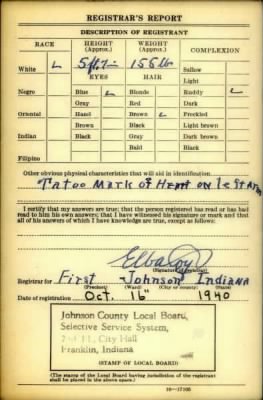 REGISTRAR'S REPORT
DESCRIPTION OF REGISTRANT
RACE HEIGHT (Approx.) WEIGHT (Approx.) COMPLEXION
White ✓ 5 ft. 7 in 155 lb Sallow
EYES HAIR Light
Negro Blue ✓ Blonde Ruddy ✓
Gray Red Dark
Oriental Hazel Brown ✓ Freckled
Brown Black Light brown
Indian Black Gray Dark brown
Bald Black
Filipino
Other obvious physical characteristics that will aid in identification
Tatoo Mark of Heart on left arm
I certify that my answers are true; that the person registered has read or has had
read to him his own answers; that I have witnessed his signature or mark and that
all of his answers of which I have knowledge are true, except as follows:
Elba
(Signature of registrar)
Registrar for First Johnson Indiana
(Precinct) (Ward) (City or county) (State)
Date of registration Oct. 16 1940
Johnson County Local Board,
Selective Service System,
City Hall
Franklin, Indiana
(STAMP OF LOCAL BOARD)
(The stamp of the Local Board having jurisdiction of the registrant
shall be placed in the above space.)